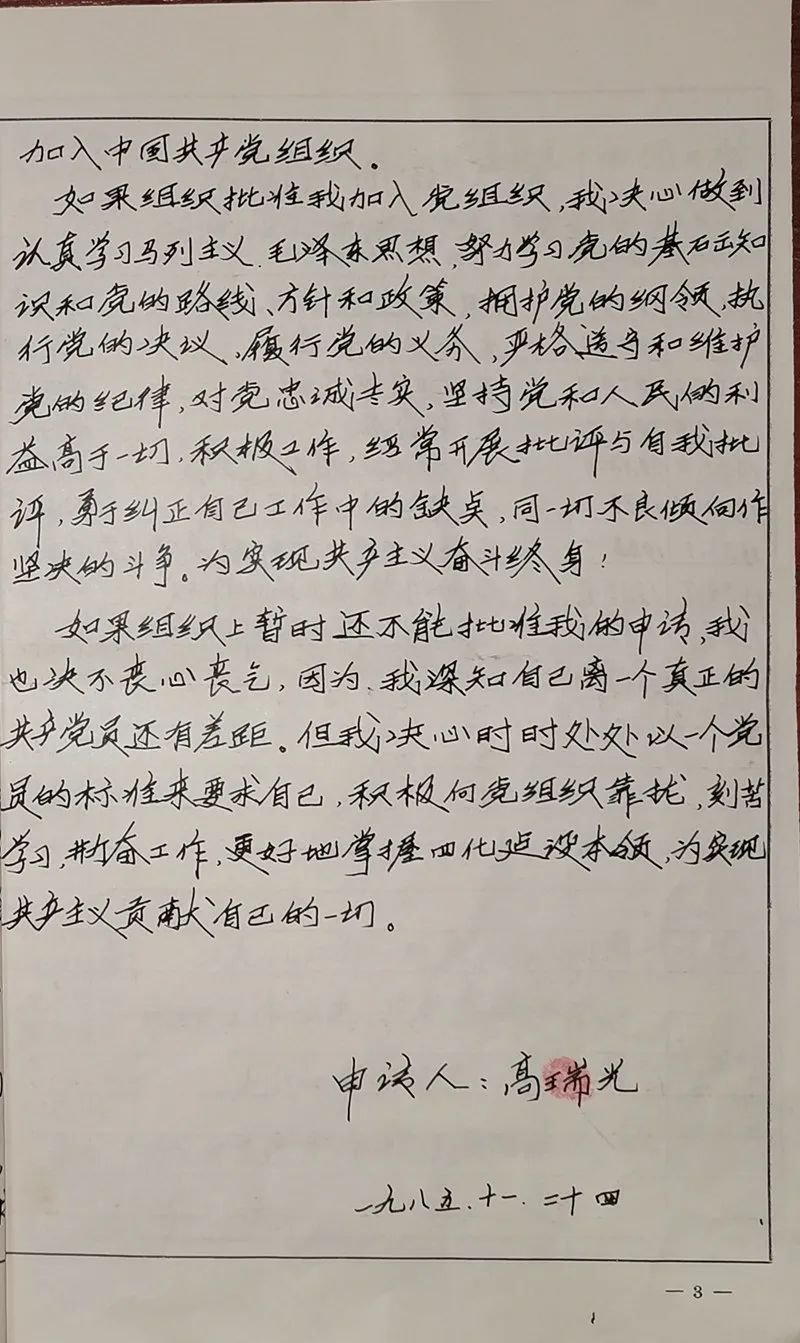 加入中国共产党组织。
如果组织批准我加入党组织，我决心做到
认真学习马列主义.毛泽东思想，努力学习党的基础知
识和党的路线、方针和政策，拥护党的纲领，执
行党的决议，履行党的义务，严格遵守和维护
党的纪律，对党忠诚老实，坚持党和人民的利
益高于一切，积极工作，经常开展批评与自我批
评，勇于纠正自己工作中的缺点，同一切不良倾向作
坚决的斗争。为实现共产主义奋斗终身！
如果组织上暂时还不能批准我的申请，我
也决不丧心丧气，因为.我深知自己离一个真正的
共产党员还有差距。但我决心时时处处以一个党
员的标准来要求自己，积极向党组织靠拢，刻苦
学习，勤奋工作，更好地掌握四化建设本领，为实现
共产主义贡献自己的一切。
申请人：高瑞光
一九八五.十一.二十四
— 3 —